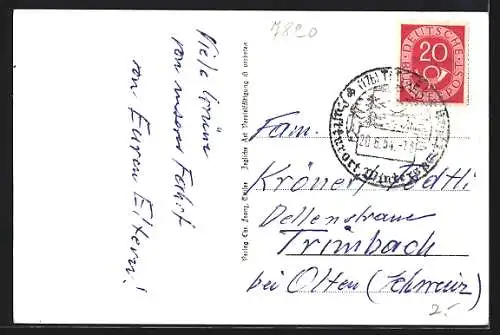 7820
Viele Grüße
von unserer Fahrt
von Euren Eltern!
Verlag Chr. Franz, Jegliche Art Vervielfältigung ist verboten
DEUTSCHE
BUNDESPOST
20
(17b)
Luftkurort
20.6.54.-18
Fam.
Kröner-
Dellenstrasse
Trimbach
bei Olten (Schweiz)
2.-